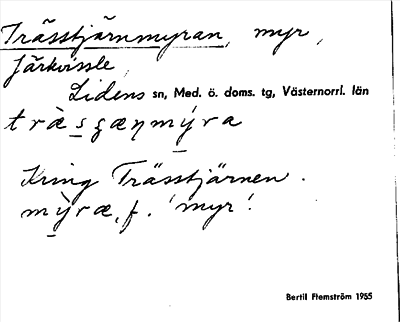 Trässtjärnmyran, myr,
Järkvissle,
Lidens sn, Med. ö. doms. tg, Västernorrl. län
träsʒæɳmýra
Kring Trässtjärnen.
mỳræ, f. 'myr'.
Bertil Flemström 1955